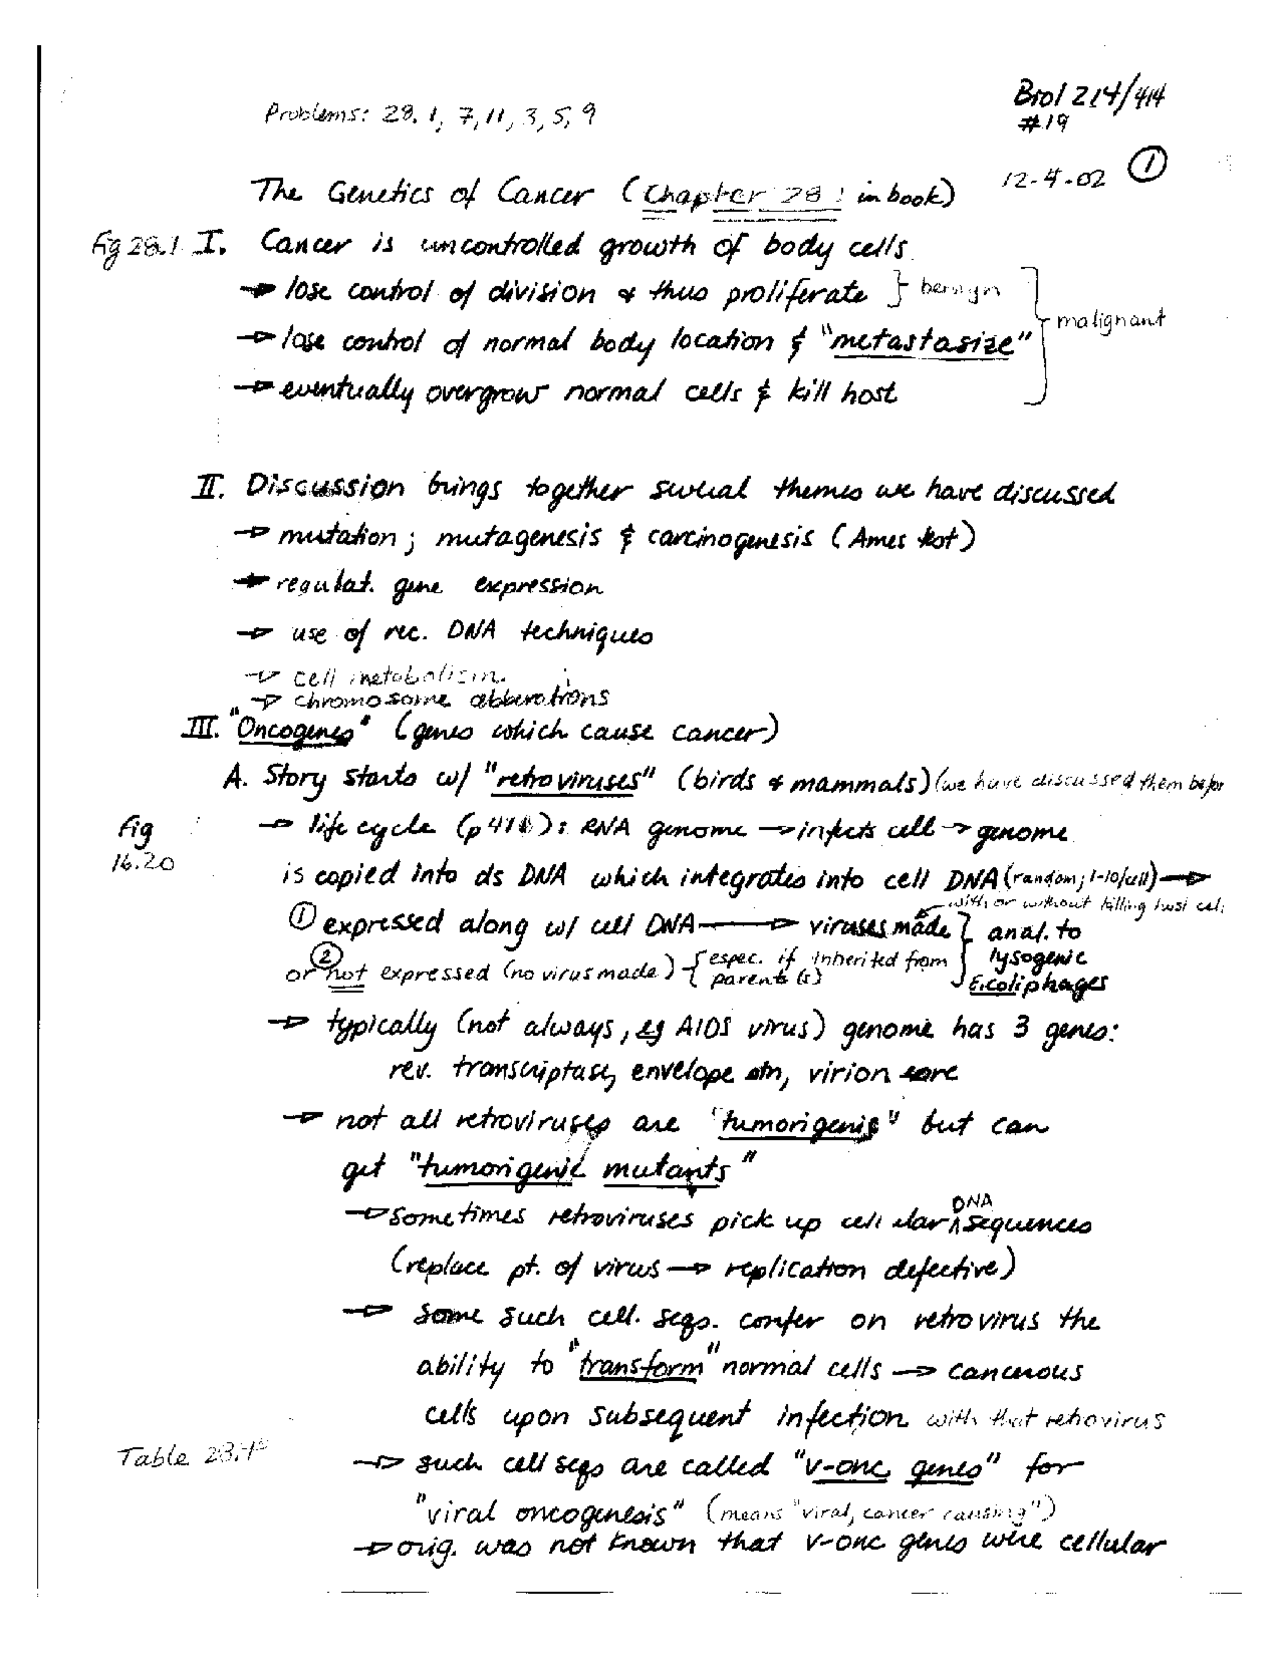 Problems: 28.1, 7, 11, 3, 5, 9
Biol 214/414
#19
12-4-02 ①
The Genetics of Cancer (Chapter 28 in book)
Fig 28.1 I. Cancer is uncontrolled growth of body cells
→ lose control of division & thus proliferate } benign
→ lose control of normal body location & "metastasize"
malignant
→ eventually overgrow normal cells & kill host
II. Discussion brings together several themes we have discussed
→ mutation; mutagenesis & carcinogenesis (Ames test)
→ regulat. gene expression
→ use of rec. DNA techniques
→ cell metabolism
→ chromosome abberations
III. "Oncogenes" (genes which cause cancer)
A. Story starts w/ "retroviruses" (birds & mammals) (we have discussed them before
Fig 16.20
→ life cycle (p 418): RNA genome → infects cell → genome
is copied into ds DNA which integrates into cell DNA (random; 1-10/cell) →
with or without killing host cell
① expressed along w/ cell DNA → viruses made } anal. to
lysogenic
E.coli phages
or ② not expressed (no virus made) { espec. if inherited from
parent(s)
→ typically (not always, eg AIDS virus) genome has 3 genes:
rev. transcriptase, envelope, virion core
→ not all retroviruses are "tumorigenic" but can
get "tumorigenic mutants"
→ sometimes retroviruses pick up cellular DNA sequences
(replace pt. of virus → replication defective)
→ some such cell. seqs. confer on retrovirus the
ability to "transform" normal cells → cancerous
cells upon subsequent infection with that retrovirus
Table 28.4
→ such cell seqs are called "v-onc genes" for
"viral oncogenesis" (means "viral, cancer causing")
→ orig. was not known that v-onc genes were cellular